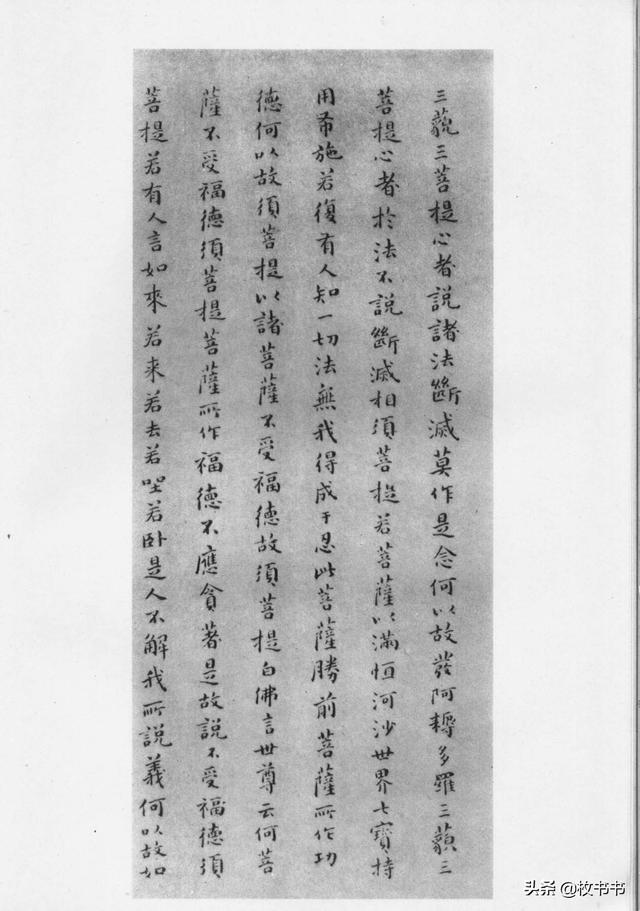 三藐三菩提心者說諸法斷滅莫作是念何以故發阿耨多羅三藐三
菩提心者於法不說斷滅相須菩提若菩薩以滿恒河沙世界七寶持
用布施若復有人知一切法無我得成于忍此菩薩勝前菩薩所作功
德何以故須菩提以諸菩薩不受福德故須菩提白佛言世尊云何菩
薩不受福德須菩提菩薩所作福德不應貪著是故說不受福德須
菩提若有人言如來若来若去若坐若卧是人不解我所說義何以故如
头条 @枚书书